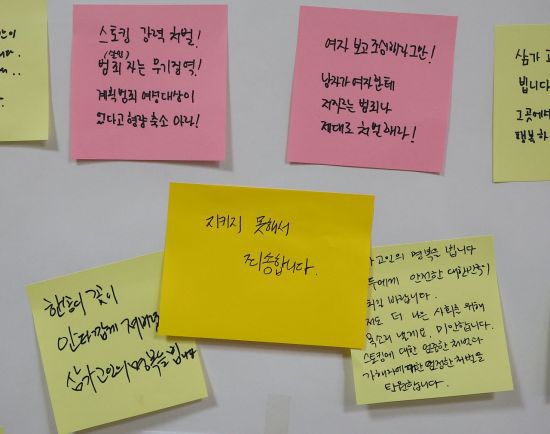 스토킹 강력 처벌!
(살인)
범죄자는 무기징역!
계획범죄 여성대상이
었다고 형량 축소 마라!
여자 보고 조심하라그만!
남자가 여자한테
저지르는 범죄나
제대로 처벌해라!
삼가 고
빕니다
그곳에서
행복하
지키지 못해서
죄송합니다.
한송이 꽃이
안타깝게 져버
삼가 고인의 명복을 빕니다
고인의 명복을 빕니다
두에게 안전한 대한민국이
되길 바랍니다.
저도 더 나은 사회를 위해
목소리 낼게요. 미안합니다.
스토킹에 대한 엄중한 처벌과
가해자에 대한 엄정한 처벌을
탄원합니다.